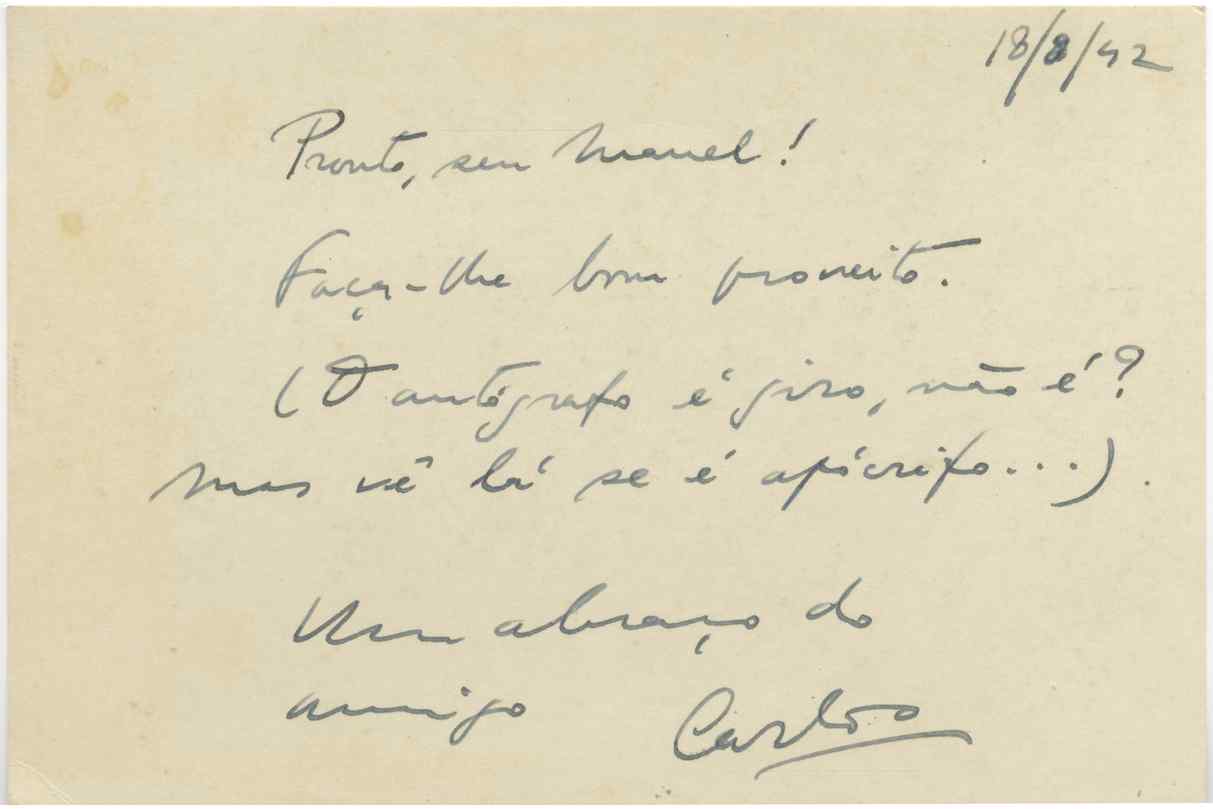 18/8/42
Pronto, seu Manel!
Faça-lhe bom proveito.
(O autógrafo é giro, não é?
Mas vê lá se é apócrifo...).
Um abraço do
amigo Carlos